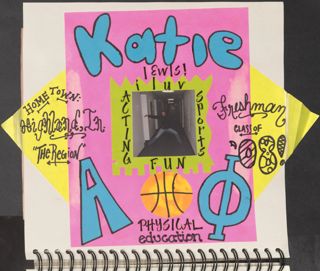 Katie
lewis!
i luv
ACTING
Sports
FUN
HOME TOWN:
Highland, In
"The Region"
Freshman
CLASS OF
'08!
A Φ
PHYSICAL
education